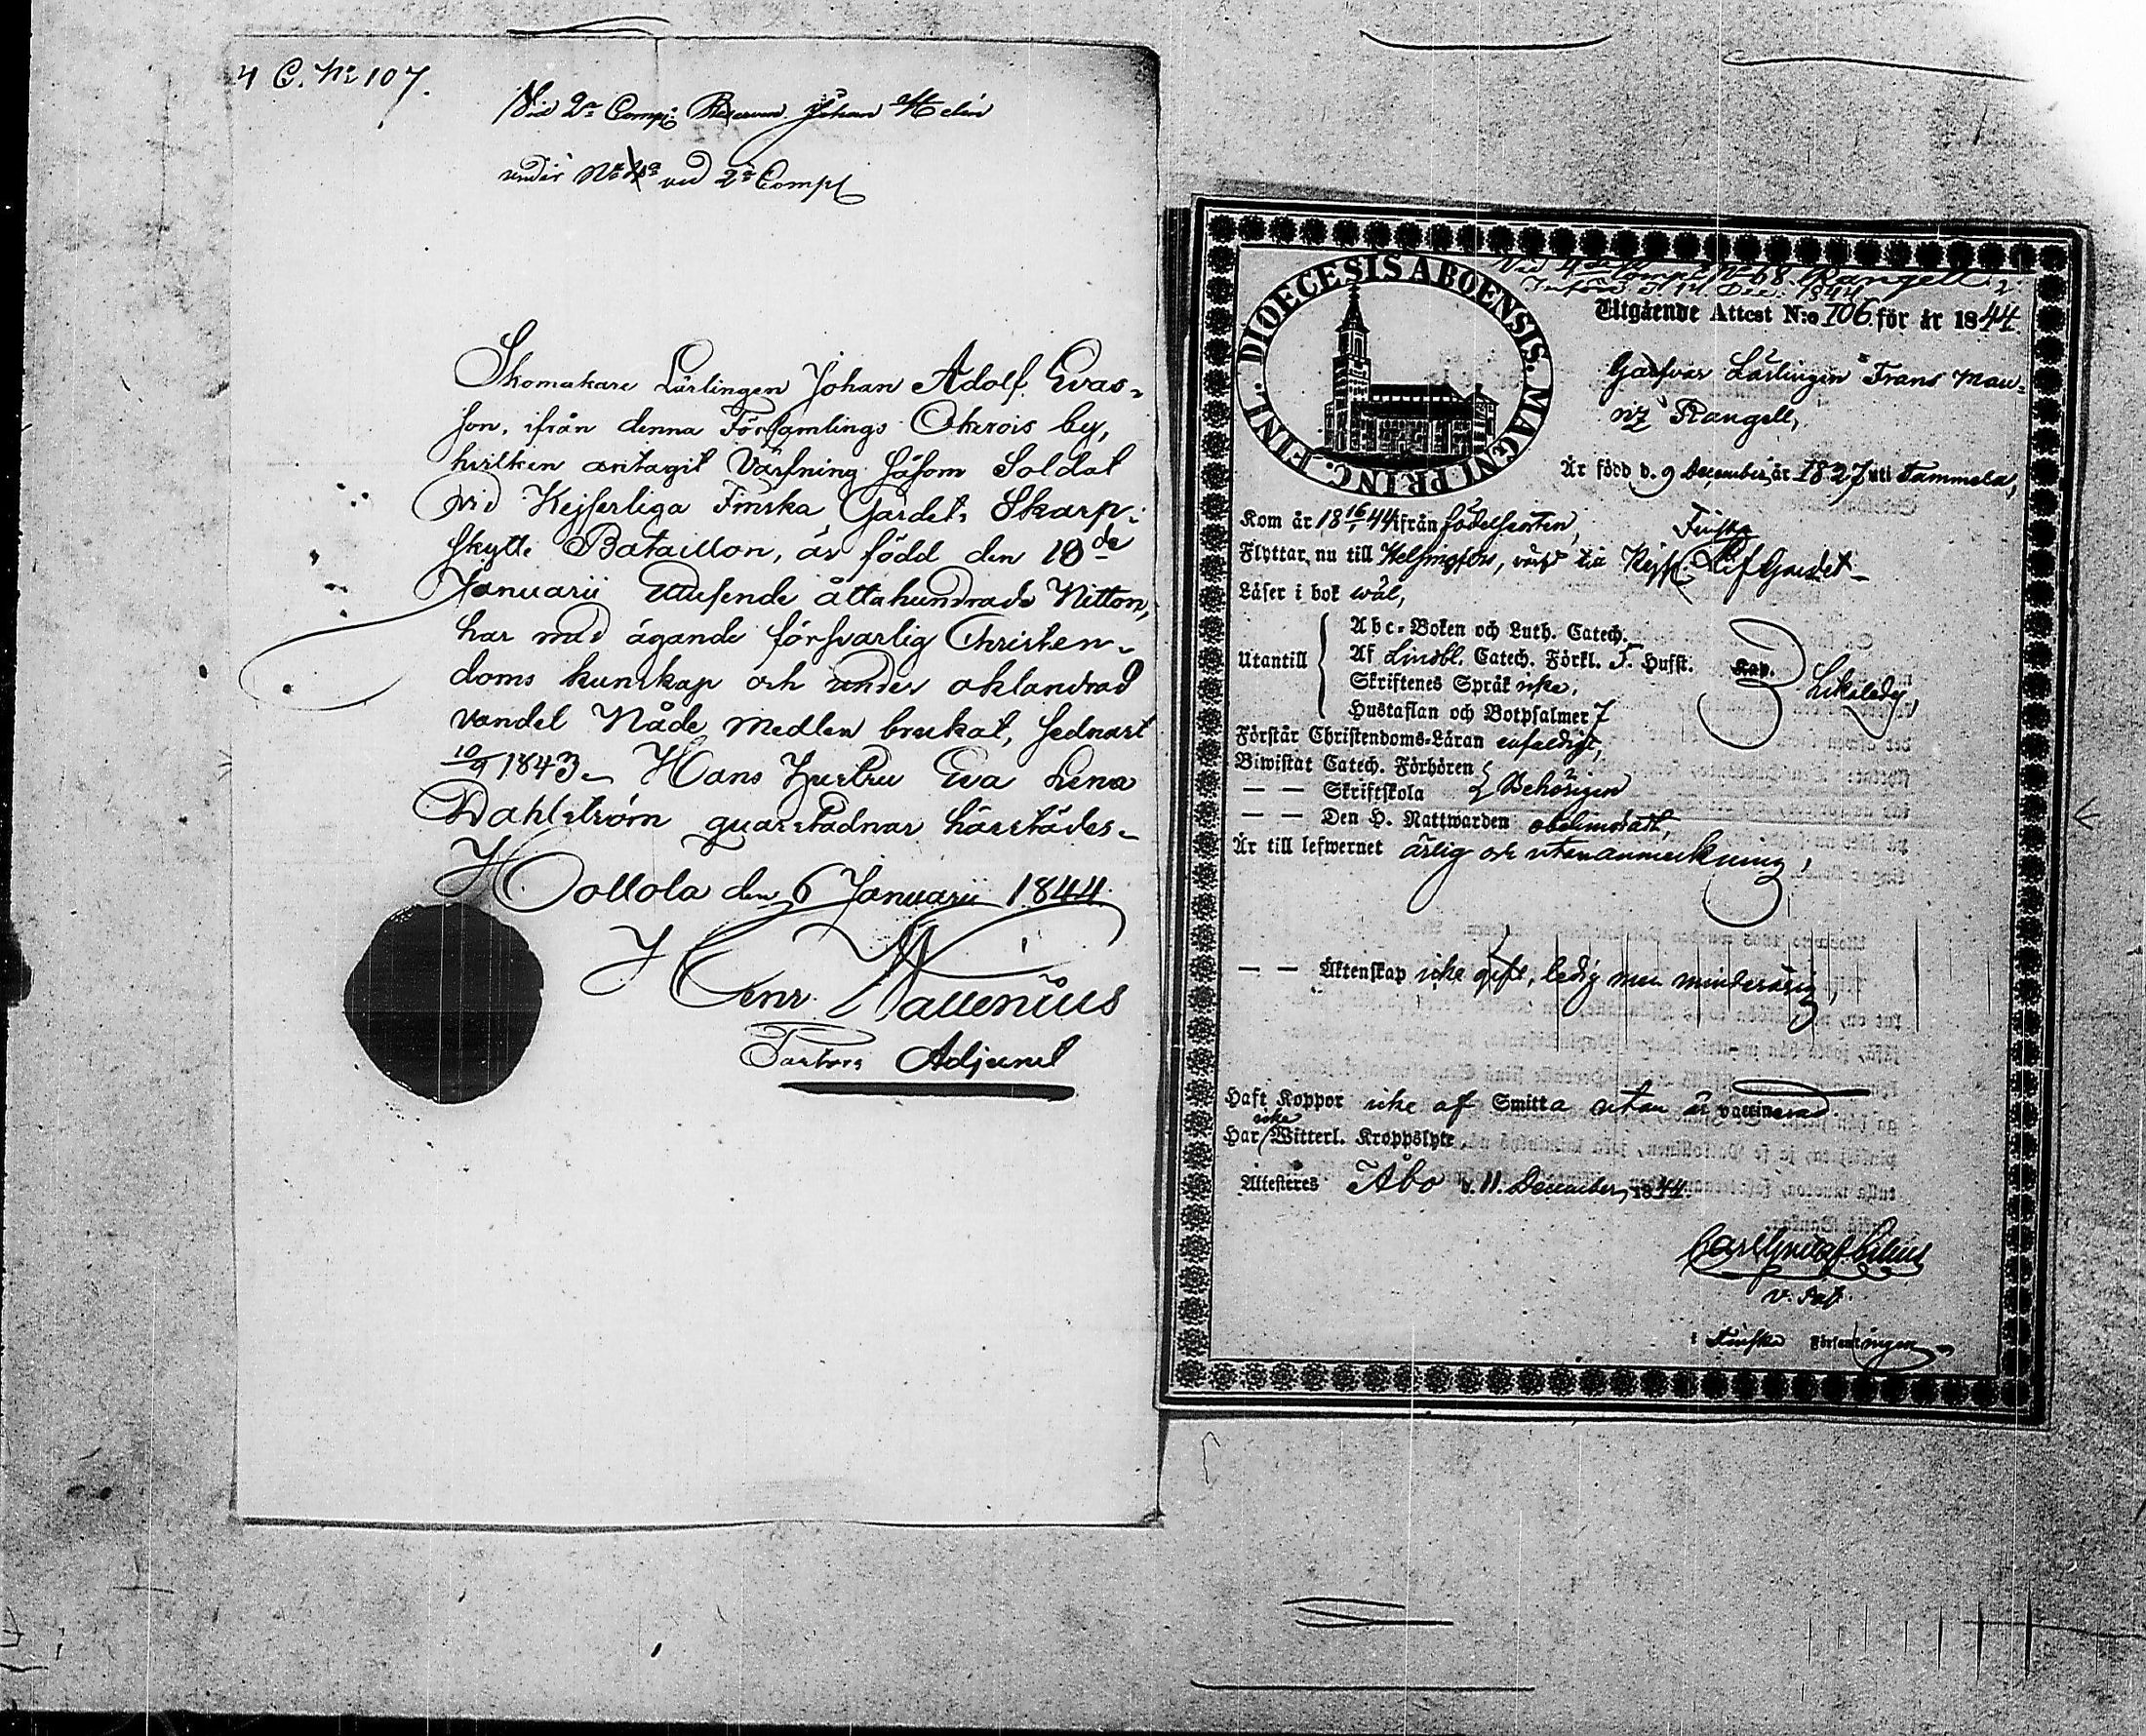 4 C. No 107.
Vid 2a Comp: Reserven Johan Helin
under No ved 2a Comp
Skomakare Lärlingen Johan Adolf Evas-
son, ifrån denna Församlings Okerois by,
hvilken antagit Värfning såsom Soldat
vid Kejserliga Finska Gardets Skarp-
skytte Bataillon, är född den 18de
Januarii Ettusende åttahundrade Nitton,
har med ägande försvarlig Christen-
doms kunskap och under oklandrad
vandel Nåde medlen brukat, sednast
10/9 1843. Hans hustru Eva Lena
Dahlström quarstadnar härstädes.
Hollola den 6 Januarii 1844.
Henr. Wallenius
Pastors Adjunct
DIOECESIS ABOENSIS. MAGNI PRINC. FINL.
Vid 4de Comp. No 68. Rangell. 2.
Införd d. 14 Dec: 1844
Utgående Attest N:o 106 för år 1844.
Garfvar Lärlingen Frans Mau-
ritz Rangell,
Är född d. 9 December år 1827 uti Tammela,
Kom år 18 16/1 44 ifrån födelseorten,
Finska
Flyttar nu till Helsingfors, till Kejs. Lif Gardet
Läser i bok wäl,
Abc-Boken och Luth. Catech.
Utantill Af Lindbl. Catech. Förkl. T. Husst. Kap.
Skriftenes Språk icke.
Hustaflan och Botpsalmer 7
Förstår Christendoms-Läran enfaldigt,
Biwistat Catech. Förhören
— — Skriftskola Behörigen
— — Den H. Nattwarden oklandradt,
Är till lefwernet ärlig och utan anmärkning,
— — Äktenskap icke gift, ledig men minderårig,
Haft Koppor icke af Smitta utan är vaccinerad.
icke
Har Witterl. Kroppslyte.
Attesteres Åbo d. 11. December 1844.
Carl Gustaf
v. Past.
i Finska Församlingen